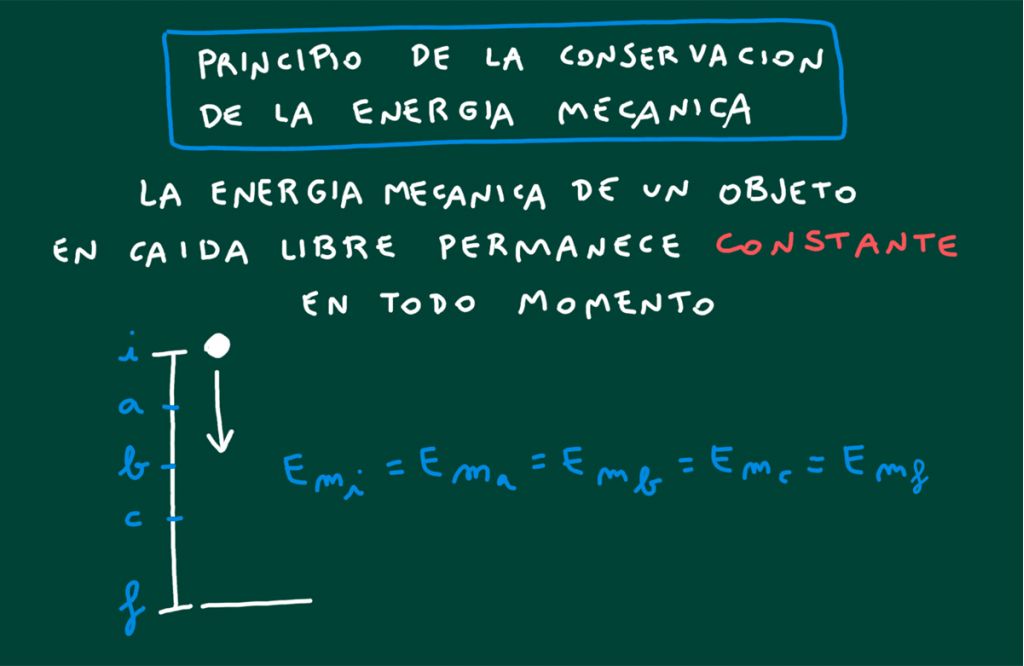 PRINCIPIO DE LA CONSERVACION
DE LA ENERGIA MECANICA
LA ENERGIA MECANICA DE UN OBJETO
EN CAIDA LIBRE PERMANECE CONSTANTE
EN TODO MOMENTO
i
a
b
E_{m_i} = E_{m_a} = E_{m_b} = E_{m_c} = E_{m_f}
c
f